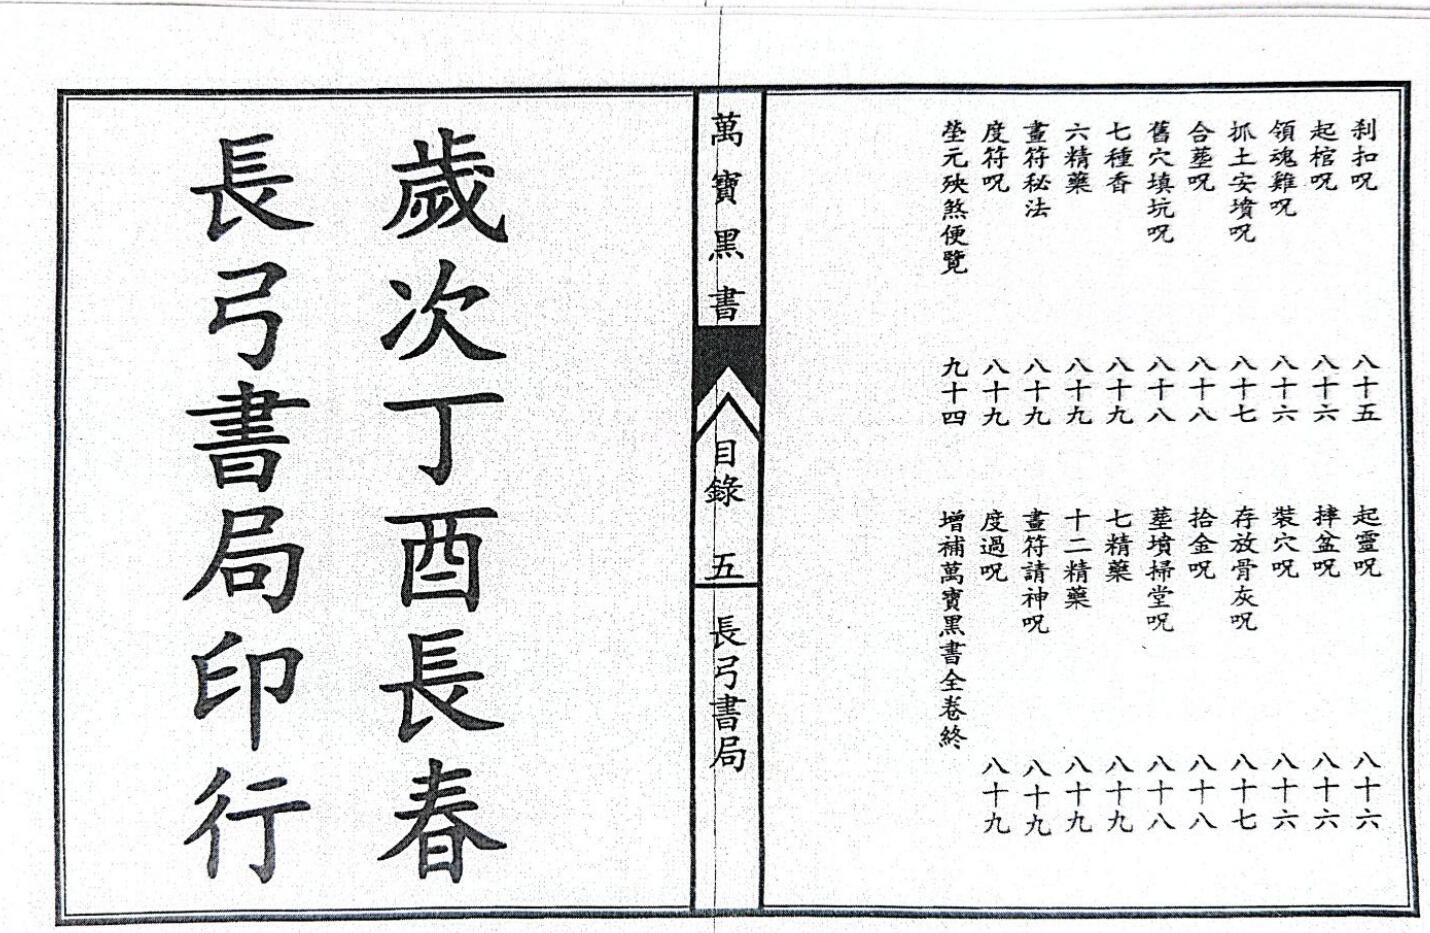 刹扣呪 八十五 起靈呪 八十六
起棺呪 八十六 摔盆呪 八十六
領魂雞呪 八十六 裝穴呪 八十六
抓土安墳呪 八十七 存放骨灰呪 八十七
合墓呪 八十八 拾金呪 八十八
舊穴填坑呪 八十八 墓墳掃堂呪 八十八
七種香 八十九 七精藥 八十九
六精藥 八十九 十二精藥 八十九
畫符秘法 八十九 畫符請神呪 八十九
度符呪 八十九 度過呪 八十九
塋元殃煞便覽 九十四 增補萬寶黑書全卷終
萬寶黑書 目錄 五 長弓書局
歲次丁酉長春
長弓書局印行